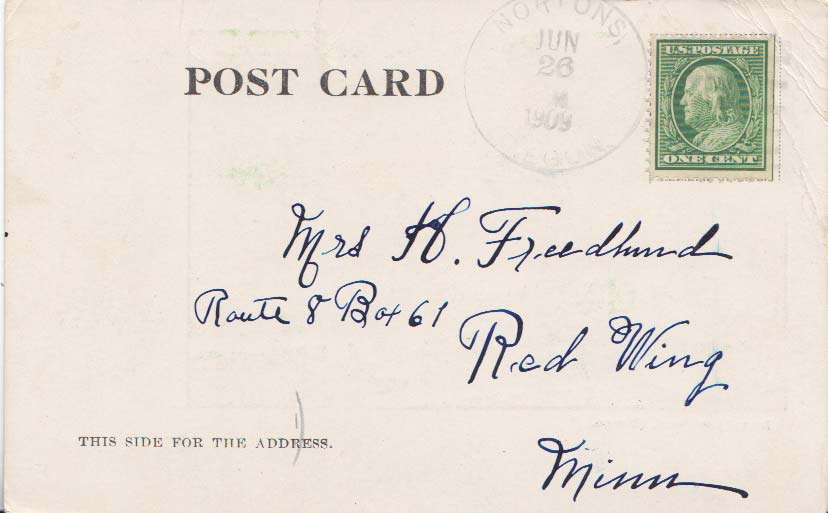 NORTONS,
JUN
26
1909
U.S. POSTAGE
POST CARD
ONE CENT
Mrs H. Freedlund
Route 8 Box 61
Red Wing
Minn
THIS SIDE FOR THE ADDRESS.